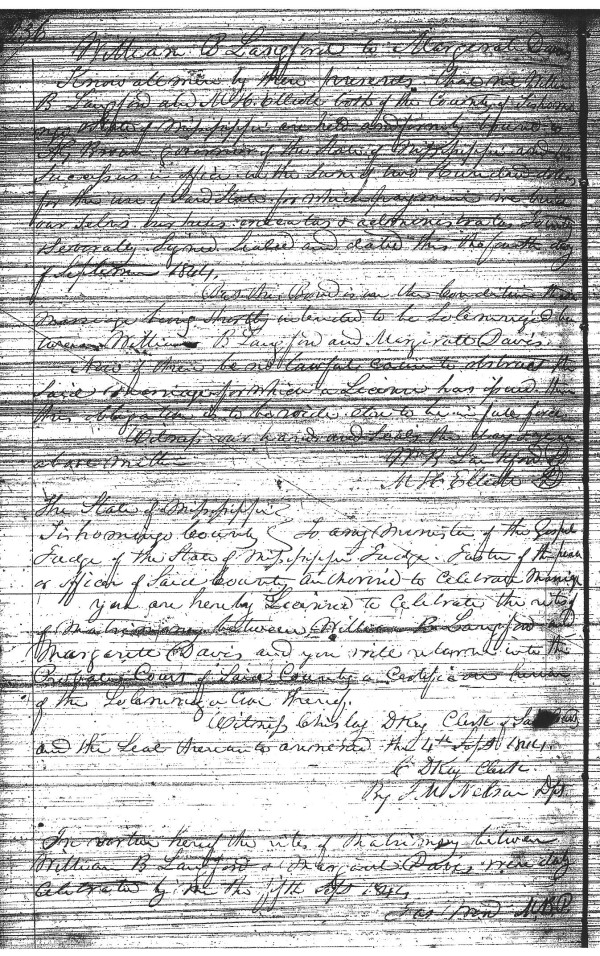 William B Langford to Margaret Davis
Know all men by these presents that we William
B Langford and M H Elliott both of the County of Tishomi
ngo State of Mississippi are held and firmly bound to
Brown Governor of the State of Mississippi and
Successors in office in the Sum of two Hundred dollars
for the use of Said State for which payment we bind
our Selvs our heirs executors & administrators Jointly
Severally Signed Sealed and dated this the fourth day
of September 1844.
But this Bond is on this Condition that
marriage being Shortly intended to be Solemnized be
tween William B Langford and Margarett Davis.
Now if there be no lawful cause to obstruct the
Said marriage for which a License has issued then
this obligation is to be void else to be in full force
Witness our hands and Seals the day & year
above written W B Langford
M H Elliott
The State of Mississippi
Tishomingo County To any Minister of the Gospel
Judge of the State of Mississippi Judge. Justice of the peace
or officer of Said County authorized to Celebrate Marriage
you are hereby Licensed to Celebrate the rites
of Matrimony between William B Langford and
Margarite Davis and you will return into the
Probate Court of Said County a Certificate
of the Solemnization thereof.
Witness Key Clerk of Said
and the Seal thereunto annexed this 4th Sept 1844.
C D Key Clerk
By J M Nelson Dpt
In virtue hereof the rites of Matrimony between
William B Langford & Margaret Davis were duly
Celebrated by me the fifth Sept 1844.